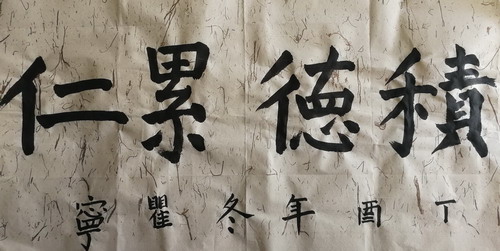 積德累仁
丁酉年冬瞿寧